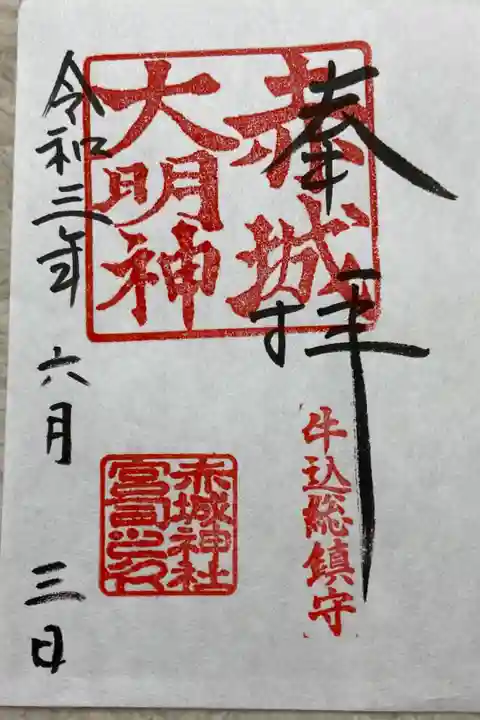 奉拝
牛込総鎮守
赤城
大明神
赤城神社
宮司之印
令和三年 六月 三日